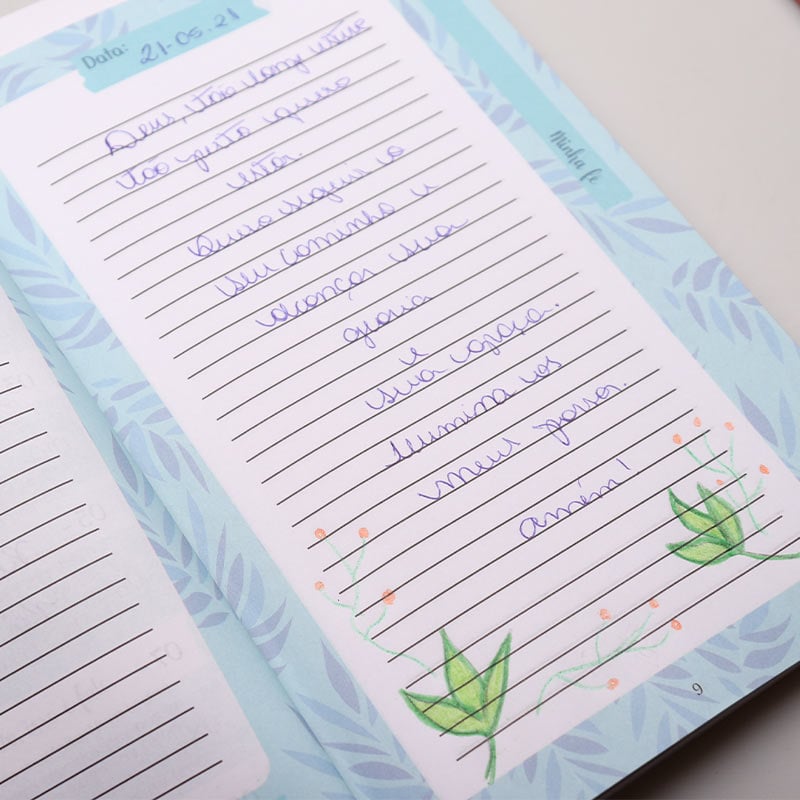 Data: 21-05-21
Minha fé
Deus, tão longe estive
tão perto quero
estar.
Quero seguir o
seu caminho e
alcançar sua
gloria
e
sua graça.
Ilumina os
meus passos.
amém!
9